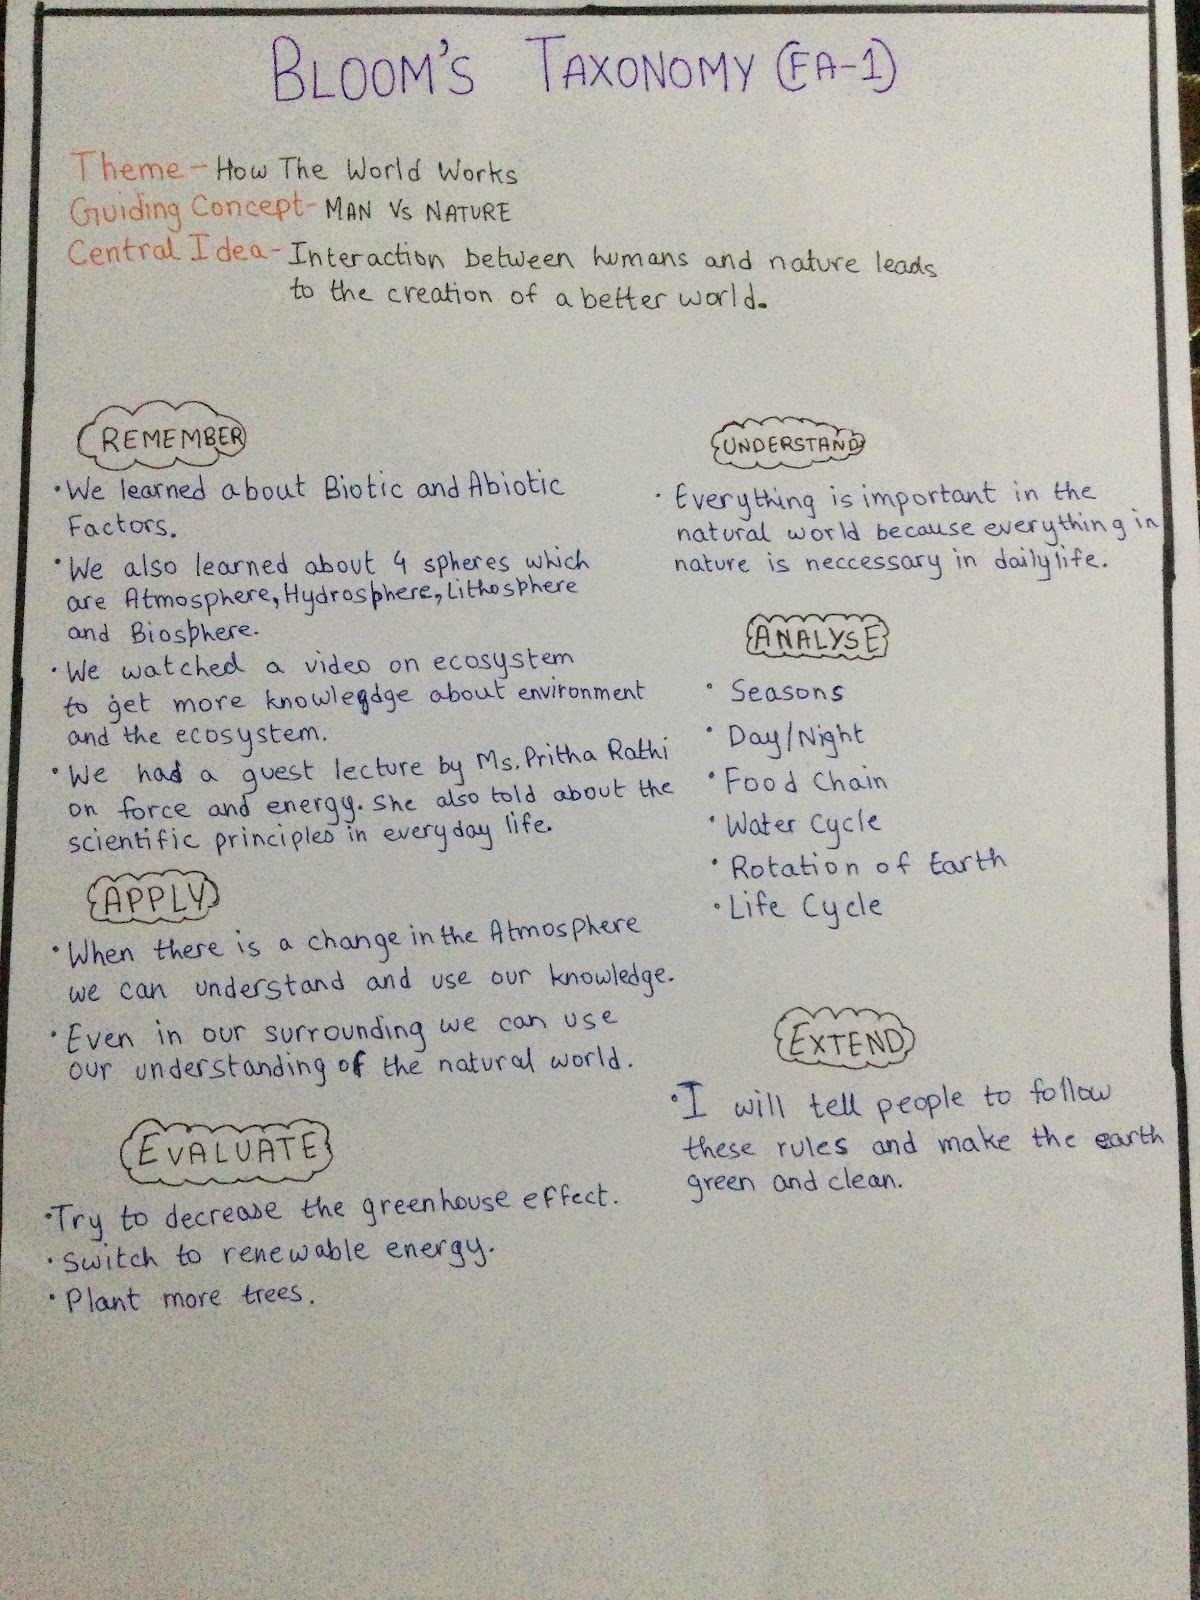 BLOOM'S TAXONOMY (FA-1)
Theme - How The World Works
Guiding Concept - MAN Vs NATURE
Central Idea - Interaction between humans and nature leads
to the creation of a better world.
REMEMBER
• We learned about Biotic and Abiotic
Factors.
• We also learned about 4 spheres which
are Atmosphere, Hydrosphere, Lithosphere
and Biosphere.
• We watched a video on ecosystem
to get more knowledge about environment
and the ecosystem.
• We had a guest lecture by Ms. Pritha Rathi
on force and energy. She also told about the
scientific principles in everyday life.
APPLY
• When there is a change in the Atmosphere
we can understand and use our knowledge.
• Even in our surrounding we can use
our understanding of the natural world.
EVALUATE
• Try to decrease the greenhouse effect.
• Switch to renewable energy.
• Plant more trees.
UNDERSTAND
• Everything is important in the
natural world because everything in
nature is neccessary in daily life.
ANALYSE
• Seasons
• Day/Night
• Food Chain
• Water Cycle
• Rotation of Earth
• Life Cycle
EXTEND
• I will tell people to follow
these rules and make the earth
green and clean.